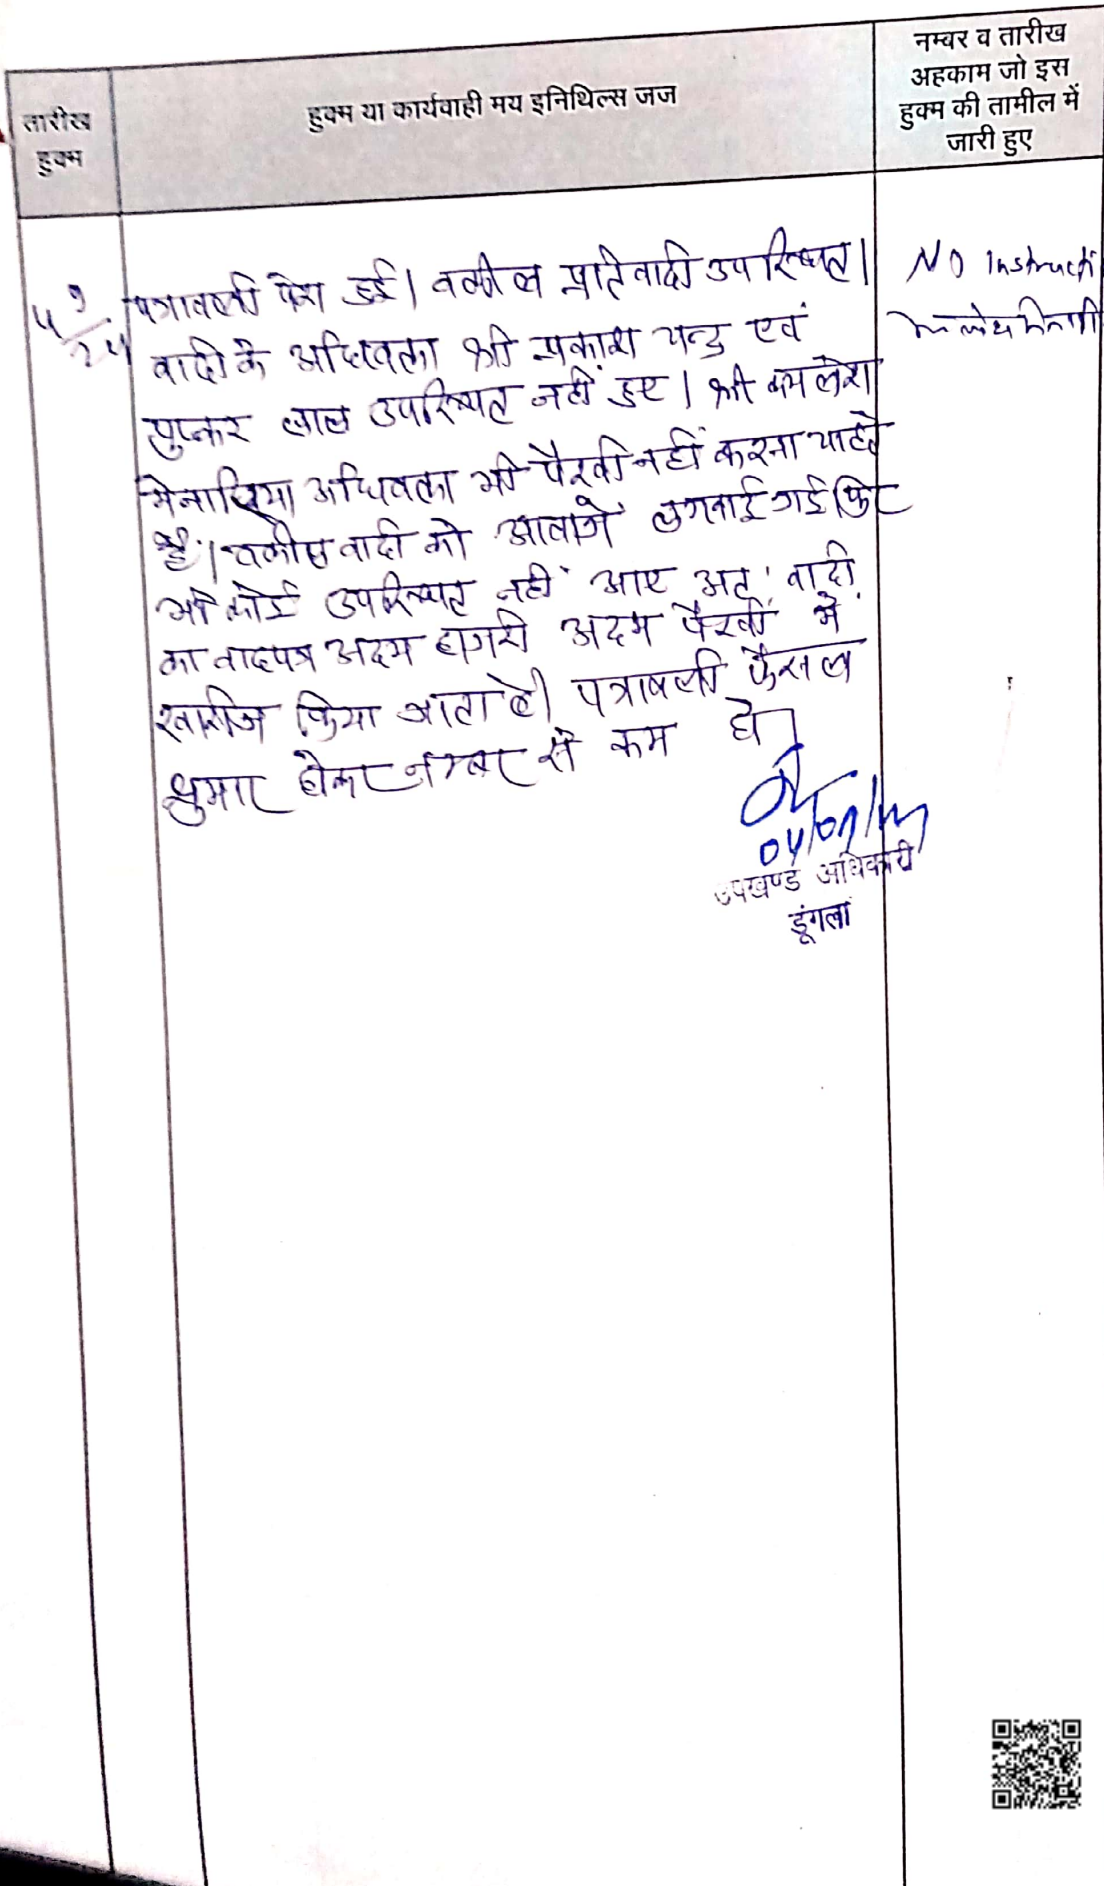 तारीख
हुक्म
हुक्म या कार्यवाही मय इनिथिल्स जज
नम्बर व तारीख
अहकाम जो इस
हुक्म की तामील में
जारी हुए
पत्रावली पेश हुई। वकील प्रतिवादी उपस्थित।
वादी के अधिवक्ता श्री प्रकाश चन्द्र एवं
पुष्कर लाल उपस्थित नहीं हुए। श्री कमलेश
मेनारिया अधिवक्ता भी पैरवी नहीं करना चाहते
है। वकील वादी को आवाजे लगवाई गई फिर
भी कोई उपस्थित नहीं आए अतः वादी
का वादपत्र अदम हाजरी अदम पैरवी में
खारीज किया जाता है। पत्रावली फैसल
शुमार होकर नम्बर से कम हो।
04/09/
उपखण्ड अधिकारी
डूंगला
No Instructi